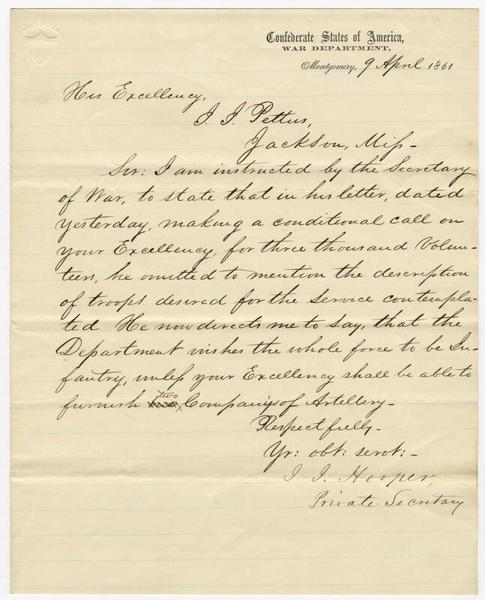 Confederate States of America,
WAR DEPARTMENT,
Montgomery, 9 April 1861
His Excellency,
J. J. Pettus,
Jackson, Miss-
Sir: I am instructed by the Secretary
of War, to state that in his letter, dated
yesterday, making a conditional call on
your Excellency, for three thousand Volun-
teers, he omitted to mention the description
of troops desired for the service contempla-
ted. He now directs me to say, that the
Department wishes the whole force to be In-
fantry, unless your Excellency shall be able to
furnish two Companies of Artillery-
Respectfully-
Yr: obt: servt:-
J. J. Hooper,
Private Secretary